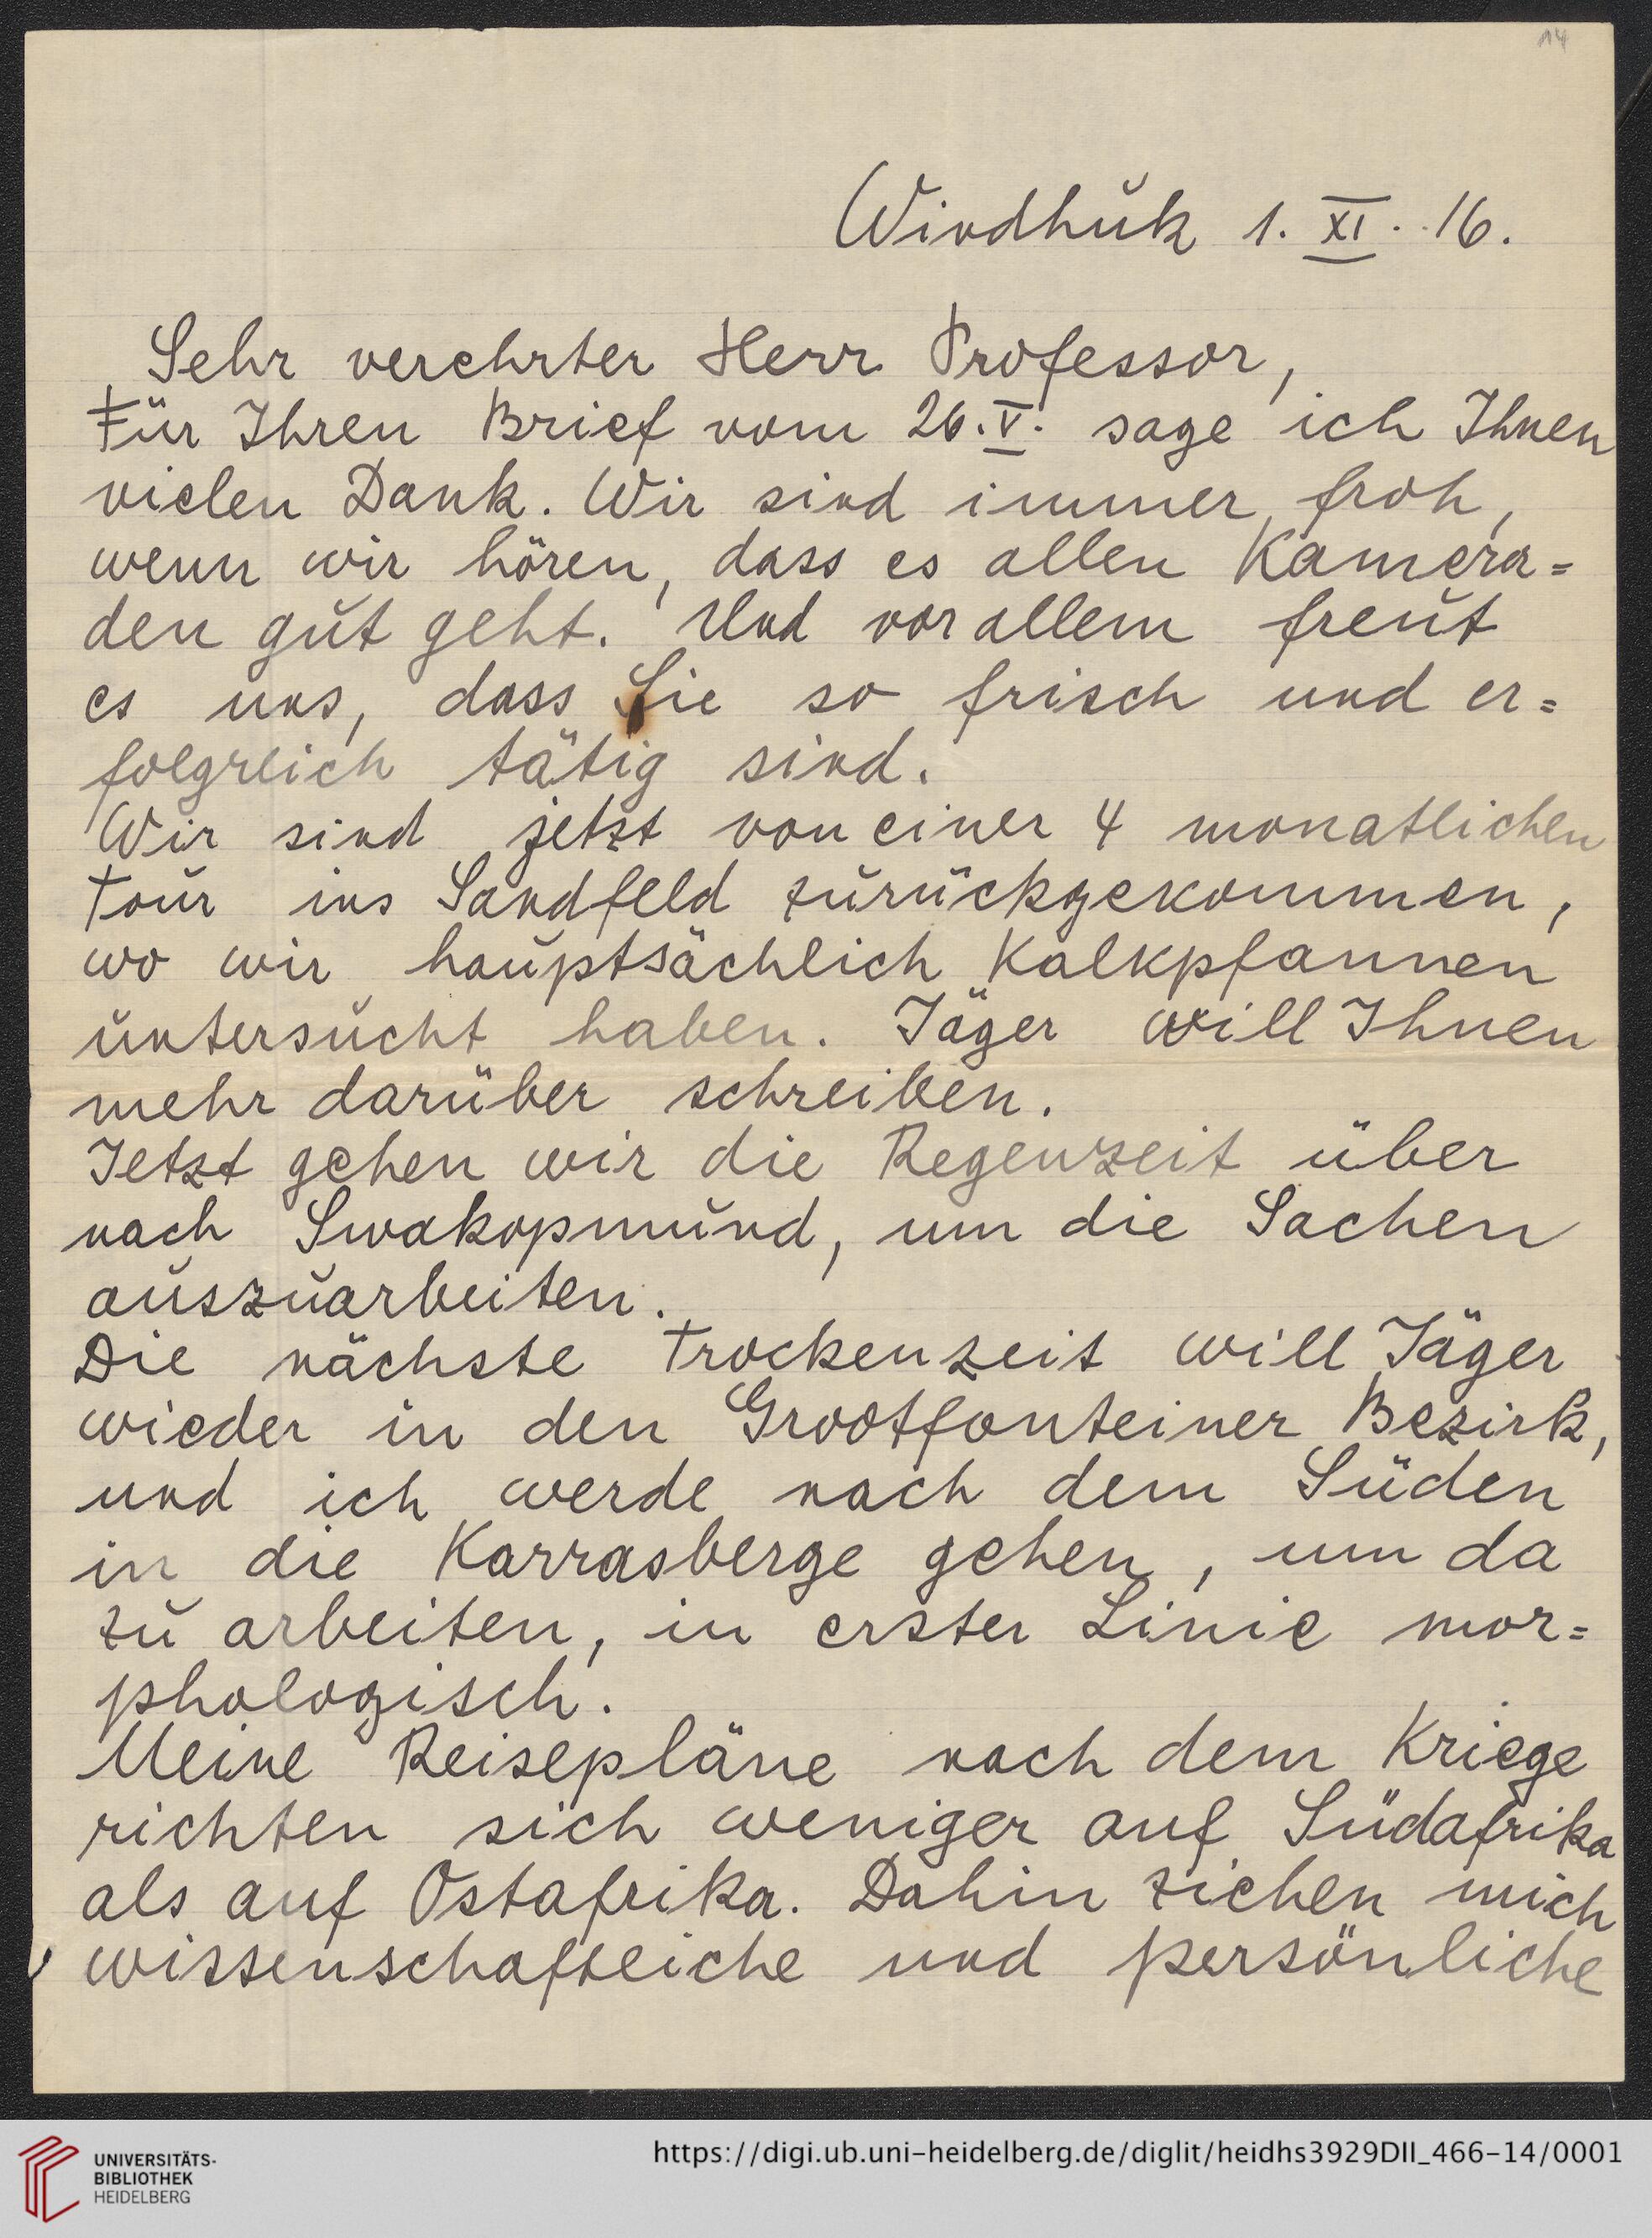 14
Windhuk 1. XI. 16.
Sehr verehrter Herr Professor,
Für Ihren Brief vom 26. V. sage ich Ihnen
vielen Dank. Wir sind immer froh,
wenn wir hören, dass es allen Kamera=
den gut geht. Und vor allem freut
es uns, dass Sie so frisch und er=
folgreich tätig sind.
Wir sind jetzt von einer 4 monatlichen
Tour ins Sandfeld zurückgekommen,
wo wir hauptsächlich Kalkpfannen
untersucht haben. Jäger will Ihnen
mehr darüber schreiben.
Jetzt gehen wir die Regenzeit über
nach Swakopmund, um die Sachen
auszuarbeiten.
Die nächste Trockenzeit will Jäger
wieder in den Grootfonteiner Bezirk,
und ich werde nach dem Süden
in die Karrasberge gehen, um da
zu arbeiten, in erster Linie mor=
phologisch.
Meine Reisepläne nach dem Kriege
richten sich weniger auf Südafrika
als auf Ostafrika. Dahin ziehen mich
wissenschaftliche und persönliche
UNIVERSITÄTS-
BIBLIOTHEK
HEIDELBERG
https://digi.ub.uni-heidelberg.de/diglit/heidhs3929DII_466-14/0001